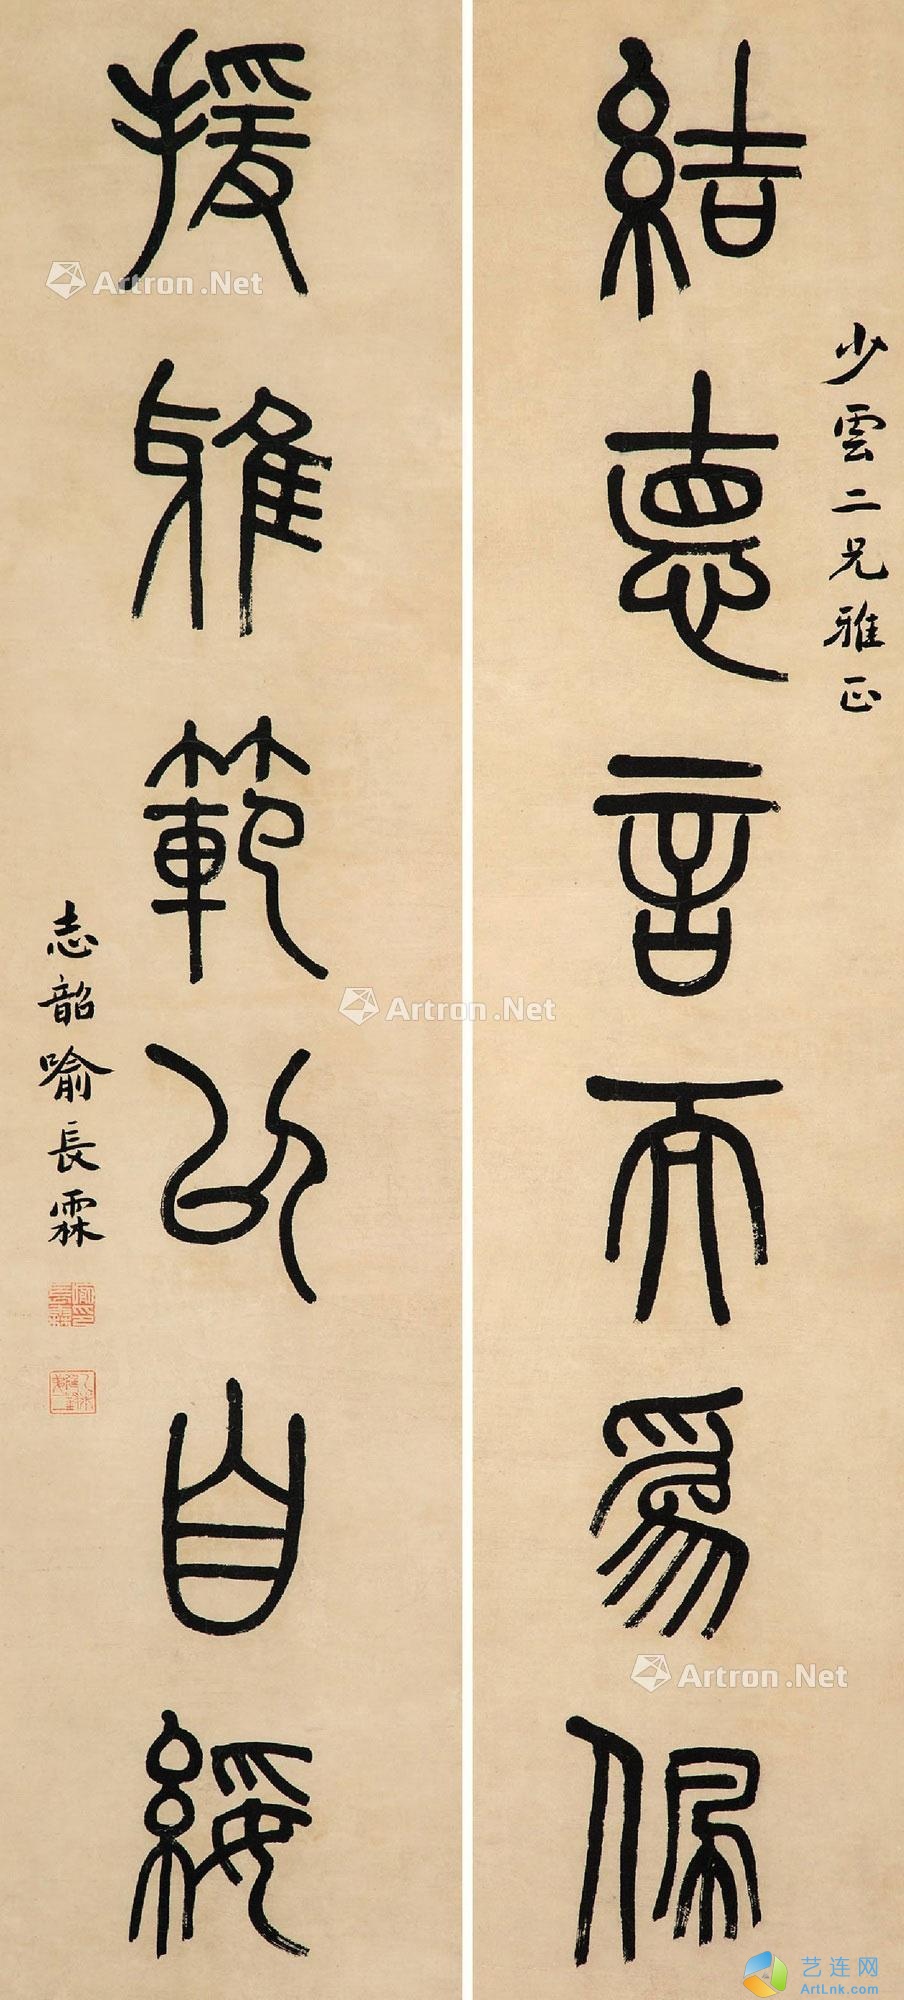 結悳言而爲佩
少雲二兄雅正
援雅範以自綏
志韶喻長霖
Artron.Net
Artron.Net
Artron.Net
艺连网
ArtLnk.com